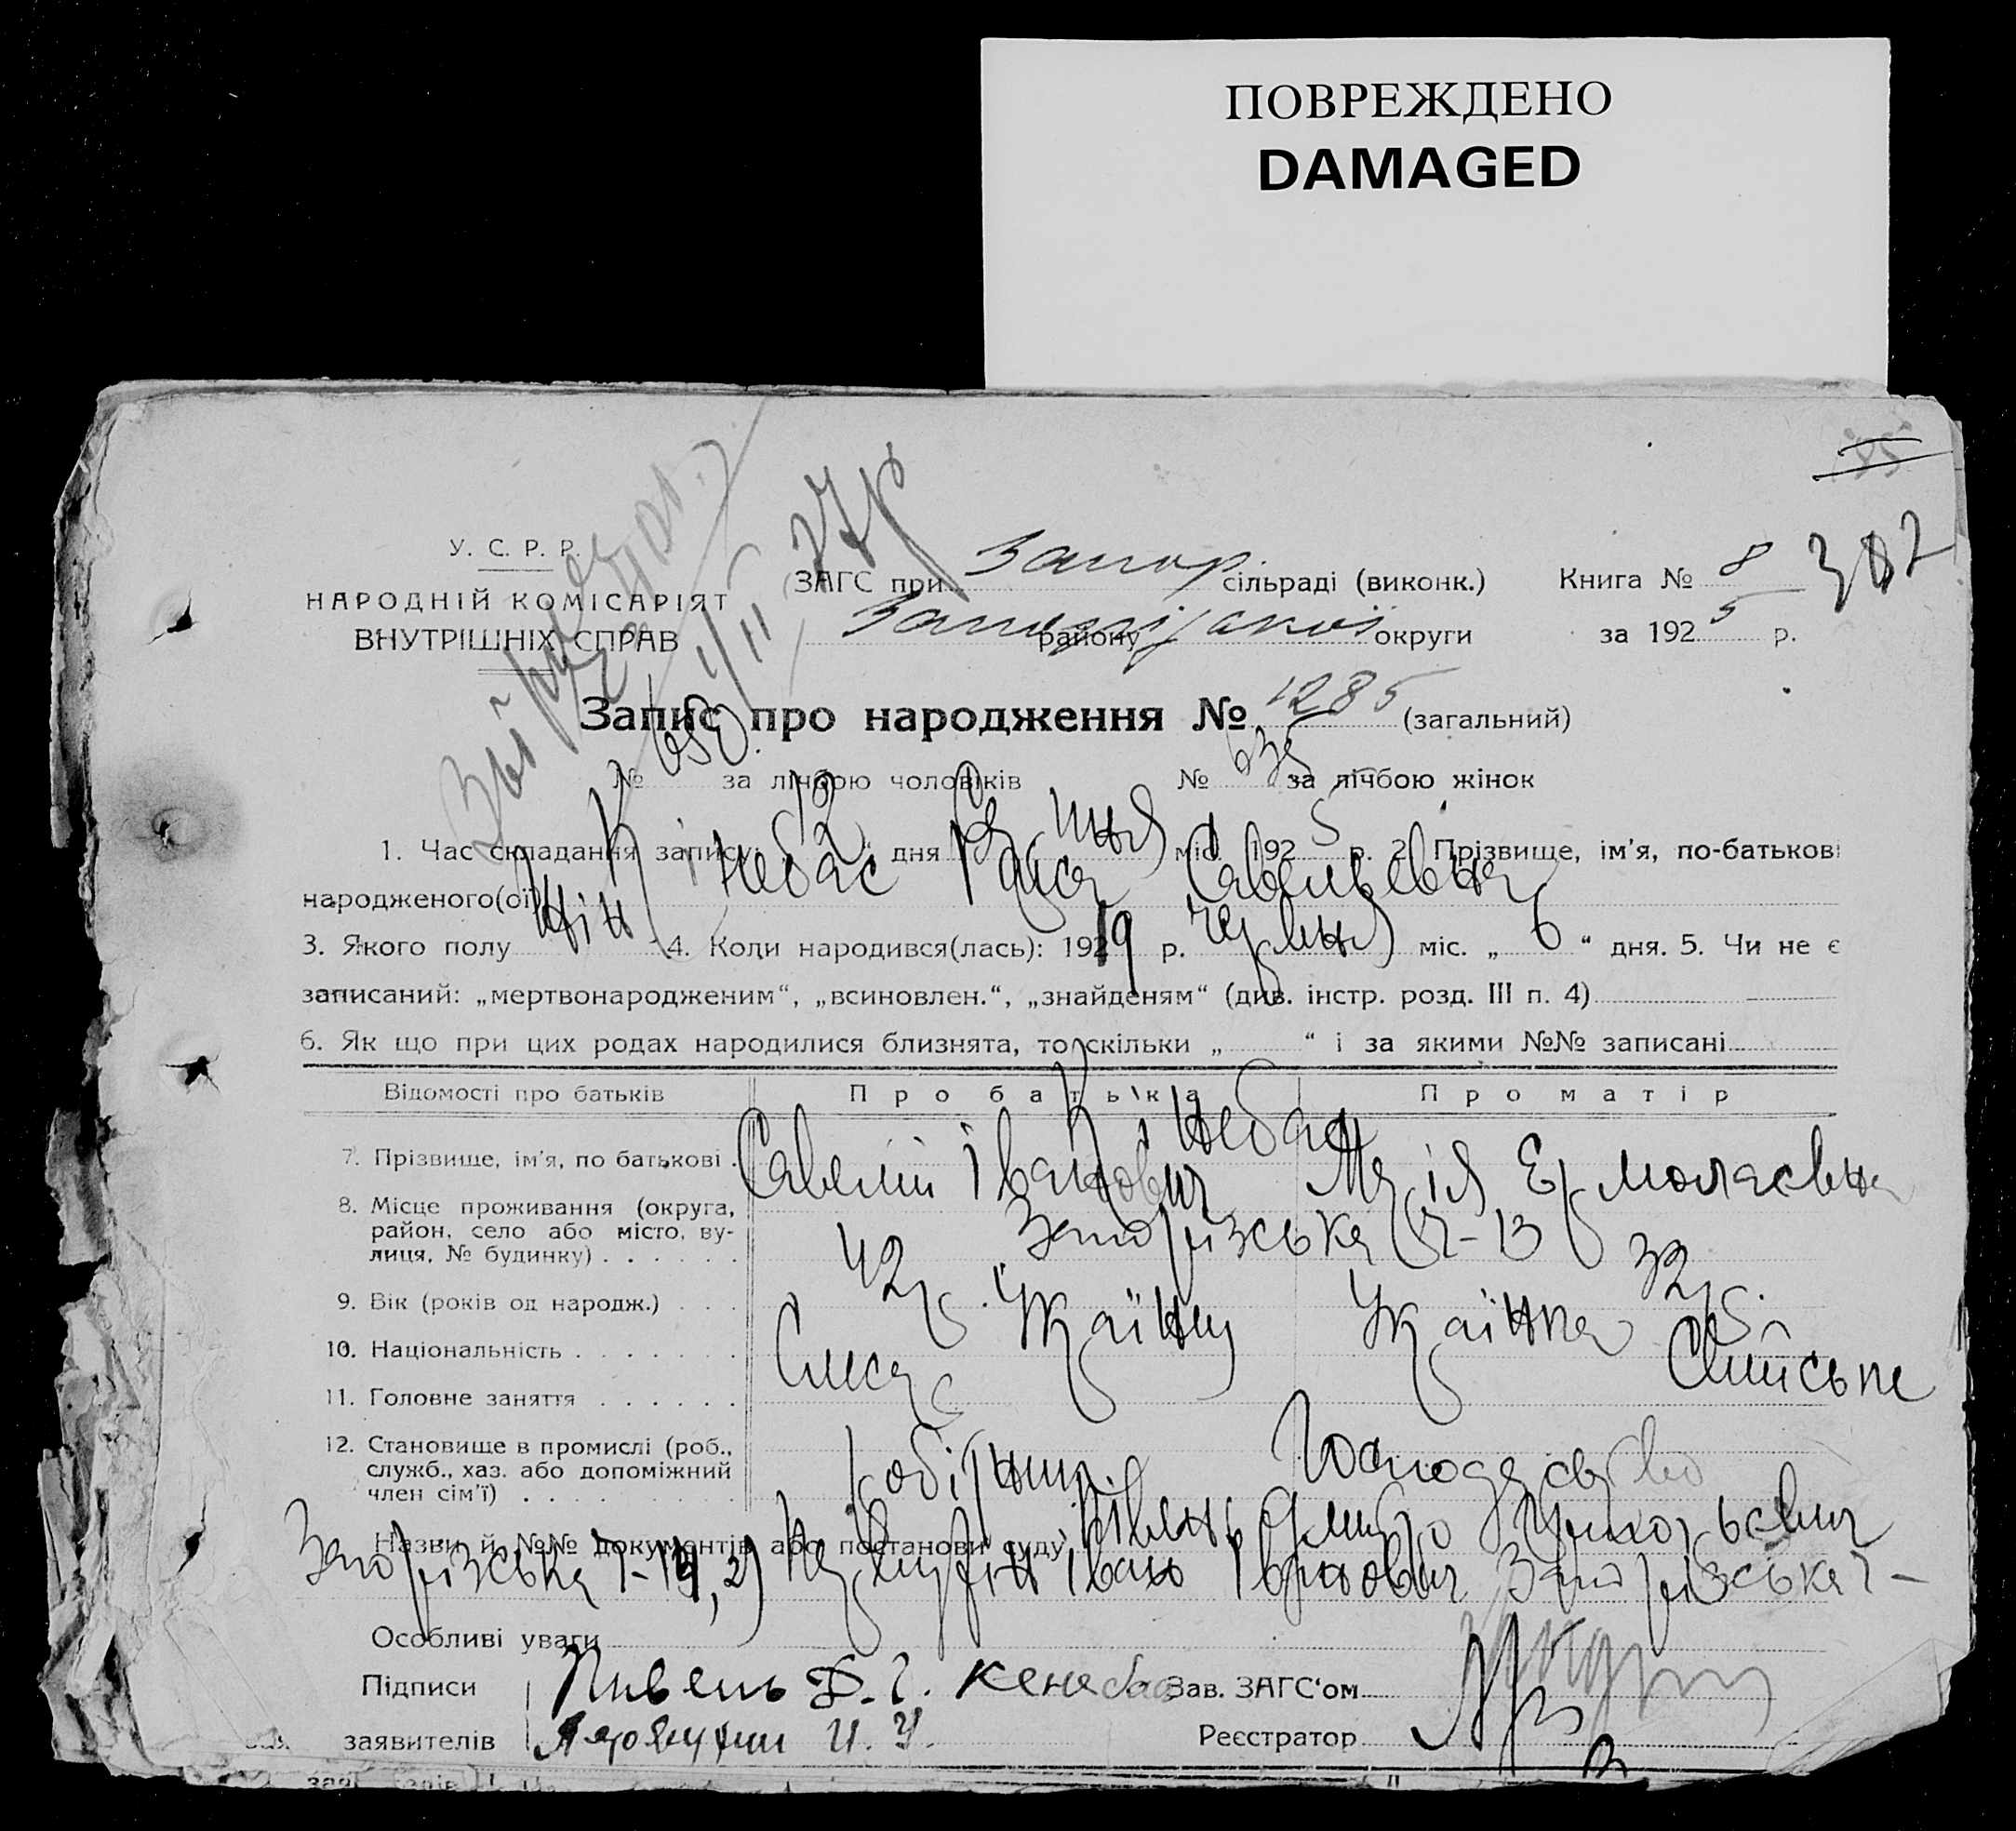 ПОВРЕЖДЕНО
DAMAGED
85
302
27 р
У. С. Р. Р.
НАРОДНІЙ КОМІСАРІЯТ
ВНУТРІШНІХ СПРАВ
ЗАГС при Запор. сільраді (виконк.)
району Запорізької округи
Книга № 8
за 1925 р.
Запис про народження № 1285 (загальний)
№ 650 за лічбою чоловіків № 635 за лічбою жінок
1. Час складання запису: „12“ дня Серпня міс. 1925 р. 2. Прізвище, ім'я, по-батькові
народженого(ої) Кринебас Раиса Савельевна
3. Якого полу жін 4. Коли народився(лась): 1919 р. червня міс. „6“ дня. 5. Чи не є
записаний: „мертвонародженим“, „всиновлен.“, „знайденям“ (див. інстр. розд. III п. 4)
6. Як що при цих родах народилися близнята, то скільки „ “ і за якими №№ записані
Відомості про батьків Про батька Про матір
7. Прізвище, ім'я, по батькові Кринебас Савелий Іванович Марія Ермолаєвна
8. Місце проживання (округа,
район, село або місто, ву-
лиця, № будинку) Запорізська
9. Вік (років од народж.) 42р. 32р.
10. Національність Українц Українка
11. Головне заняття Слисар Сілиське
12. Становище в промислі (роб.,
служб., хаз. або допоміжний
член сім'ї) робітник Господарство
Назви й №№ документів або постанови суду: Півень Дмитро
Запорізська 7-14, 2) Іван Іванович Запорізська 7-
Особливі уваги
Підписи Пивень Д. Г. Зав. ЗАГС'ом
заявителів И. И. Реєстратор